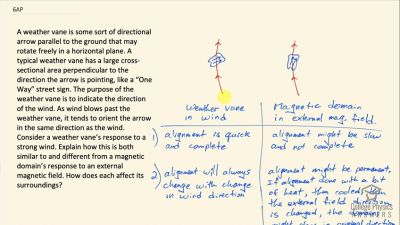 6AP
A weather vane is some sort of directional
arrow parallel to the ground that may
rotate freely in a horizontal plane. A
typical weather vane has a large cross-
sectional area perpendicular to the
direction the arrow is pointing, like a "One
Way" street sign. The purpose of the
weather vane is to indicate the direction
of the wind. As wind blows past the
weather vane, it tends to orient the arrow
in the same direction as the wind.
Consider a weather vane's response to a
strong wind. Explain how this is both
similar to and different from a magnetic
domain's response to an external
magnetic field. How does each affect its
surroundings?
Weather vane
in wind
Magnetic domain
in external mag. field.
1) alignment is quick
and complete
alignment might be slow
and not complete
2) alignment will always
change with change
in wind direction
alignment might be permanent.
If alignment done with a bit
of heat, then cooled, when
the external field direction
is changed, the domain
College Physics
ANSWERS